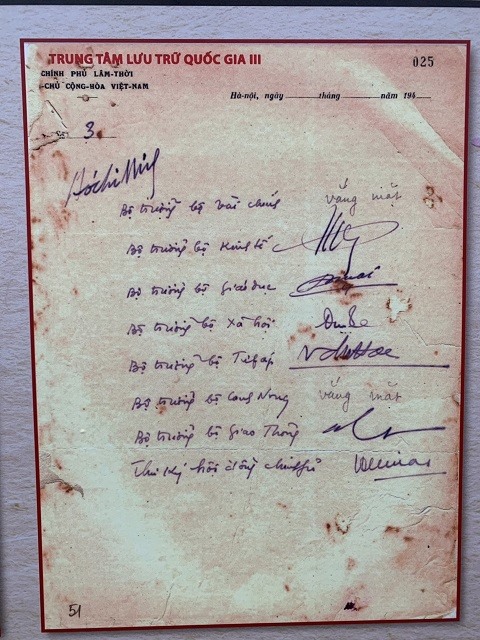 TRUNG TÂM LƯU TRỮ QUỐC GIA III
025
CHÍNH PHỦ LÂM-THỜI
CHỦ CỘNG-HÒA VIỆT-NAM
Hà-nội, ngày tháng năm 194
3
Hồ Chí Minh
Bộ trưởng bộ vắng mặt
Bộ trưởng bộ Kinh tế
Bộ trưởng bộ Giáo dục
Bộ trưởng bộ Xã hội
Bộ trưởng bộ Tư pháp
Bộ trưởng bộ Canh Nông vắng mặt
Bộ trưởng bộ Giao Thông
Thư ký hội đồng chính phủ
51